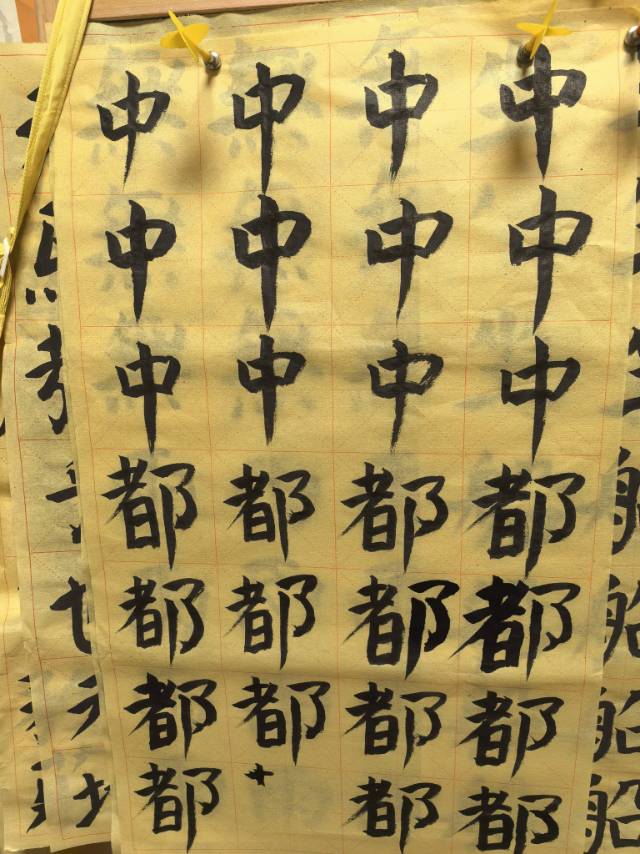 中中中中
中中中中
中中中中
都都都都
都都都都
都都都都
都都都
船
船
船
船